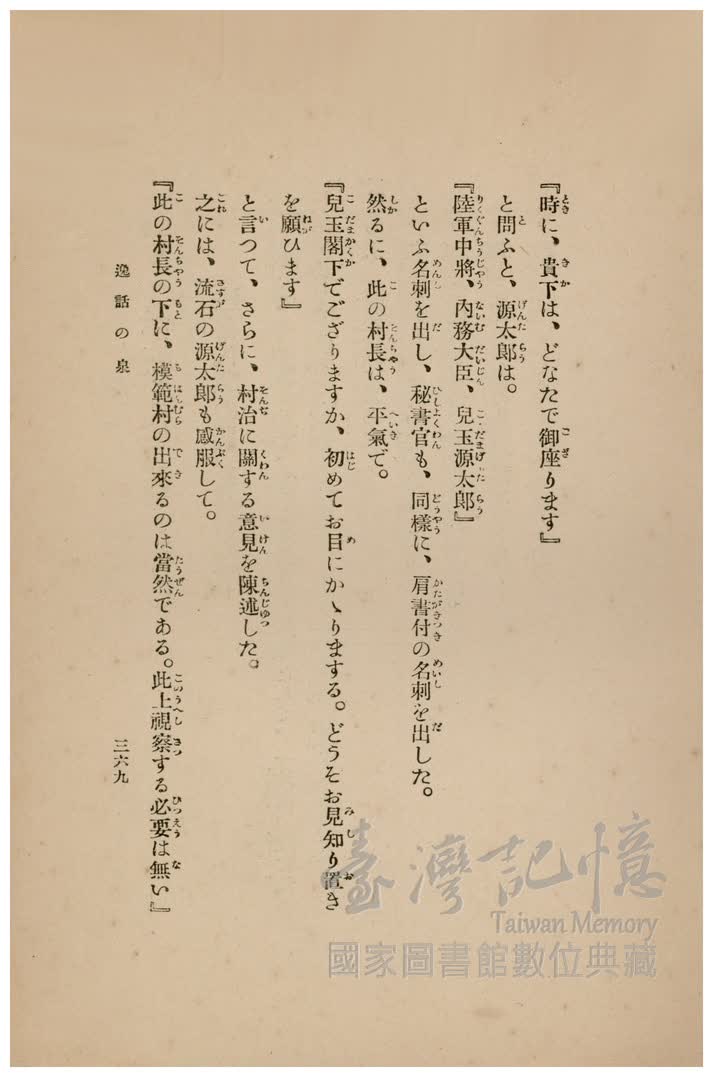 『時に、貴下は、どなたで御座ります』
と問ふと、源太郎は。
『陸軍中將、內務大臣、兒玉源太郎』
といふ名刺を出し、秘書官も、同樣に、肩書付の名刺を出した。
然るに、此の村長は、平氣で。
『兒玉閣下でござりますか、初めてお目にかゝりまする。どうぞお見知り置き
を願ひます』
と言つて、さらに、村治に關する意見を陳述した。
之には、流石の源太郎も感服して。
『此の村長の下に、模範村の出來るのは當然である。此上視察する必要は無い』
逸話の泉
三六九
臺灣記憶
Taiwan Memory
國家圖書館數位典藏